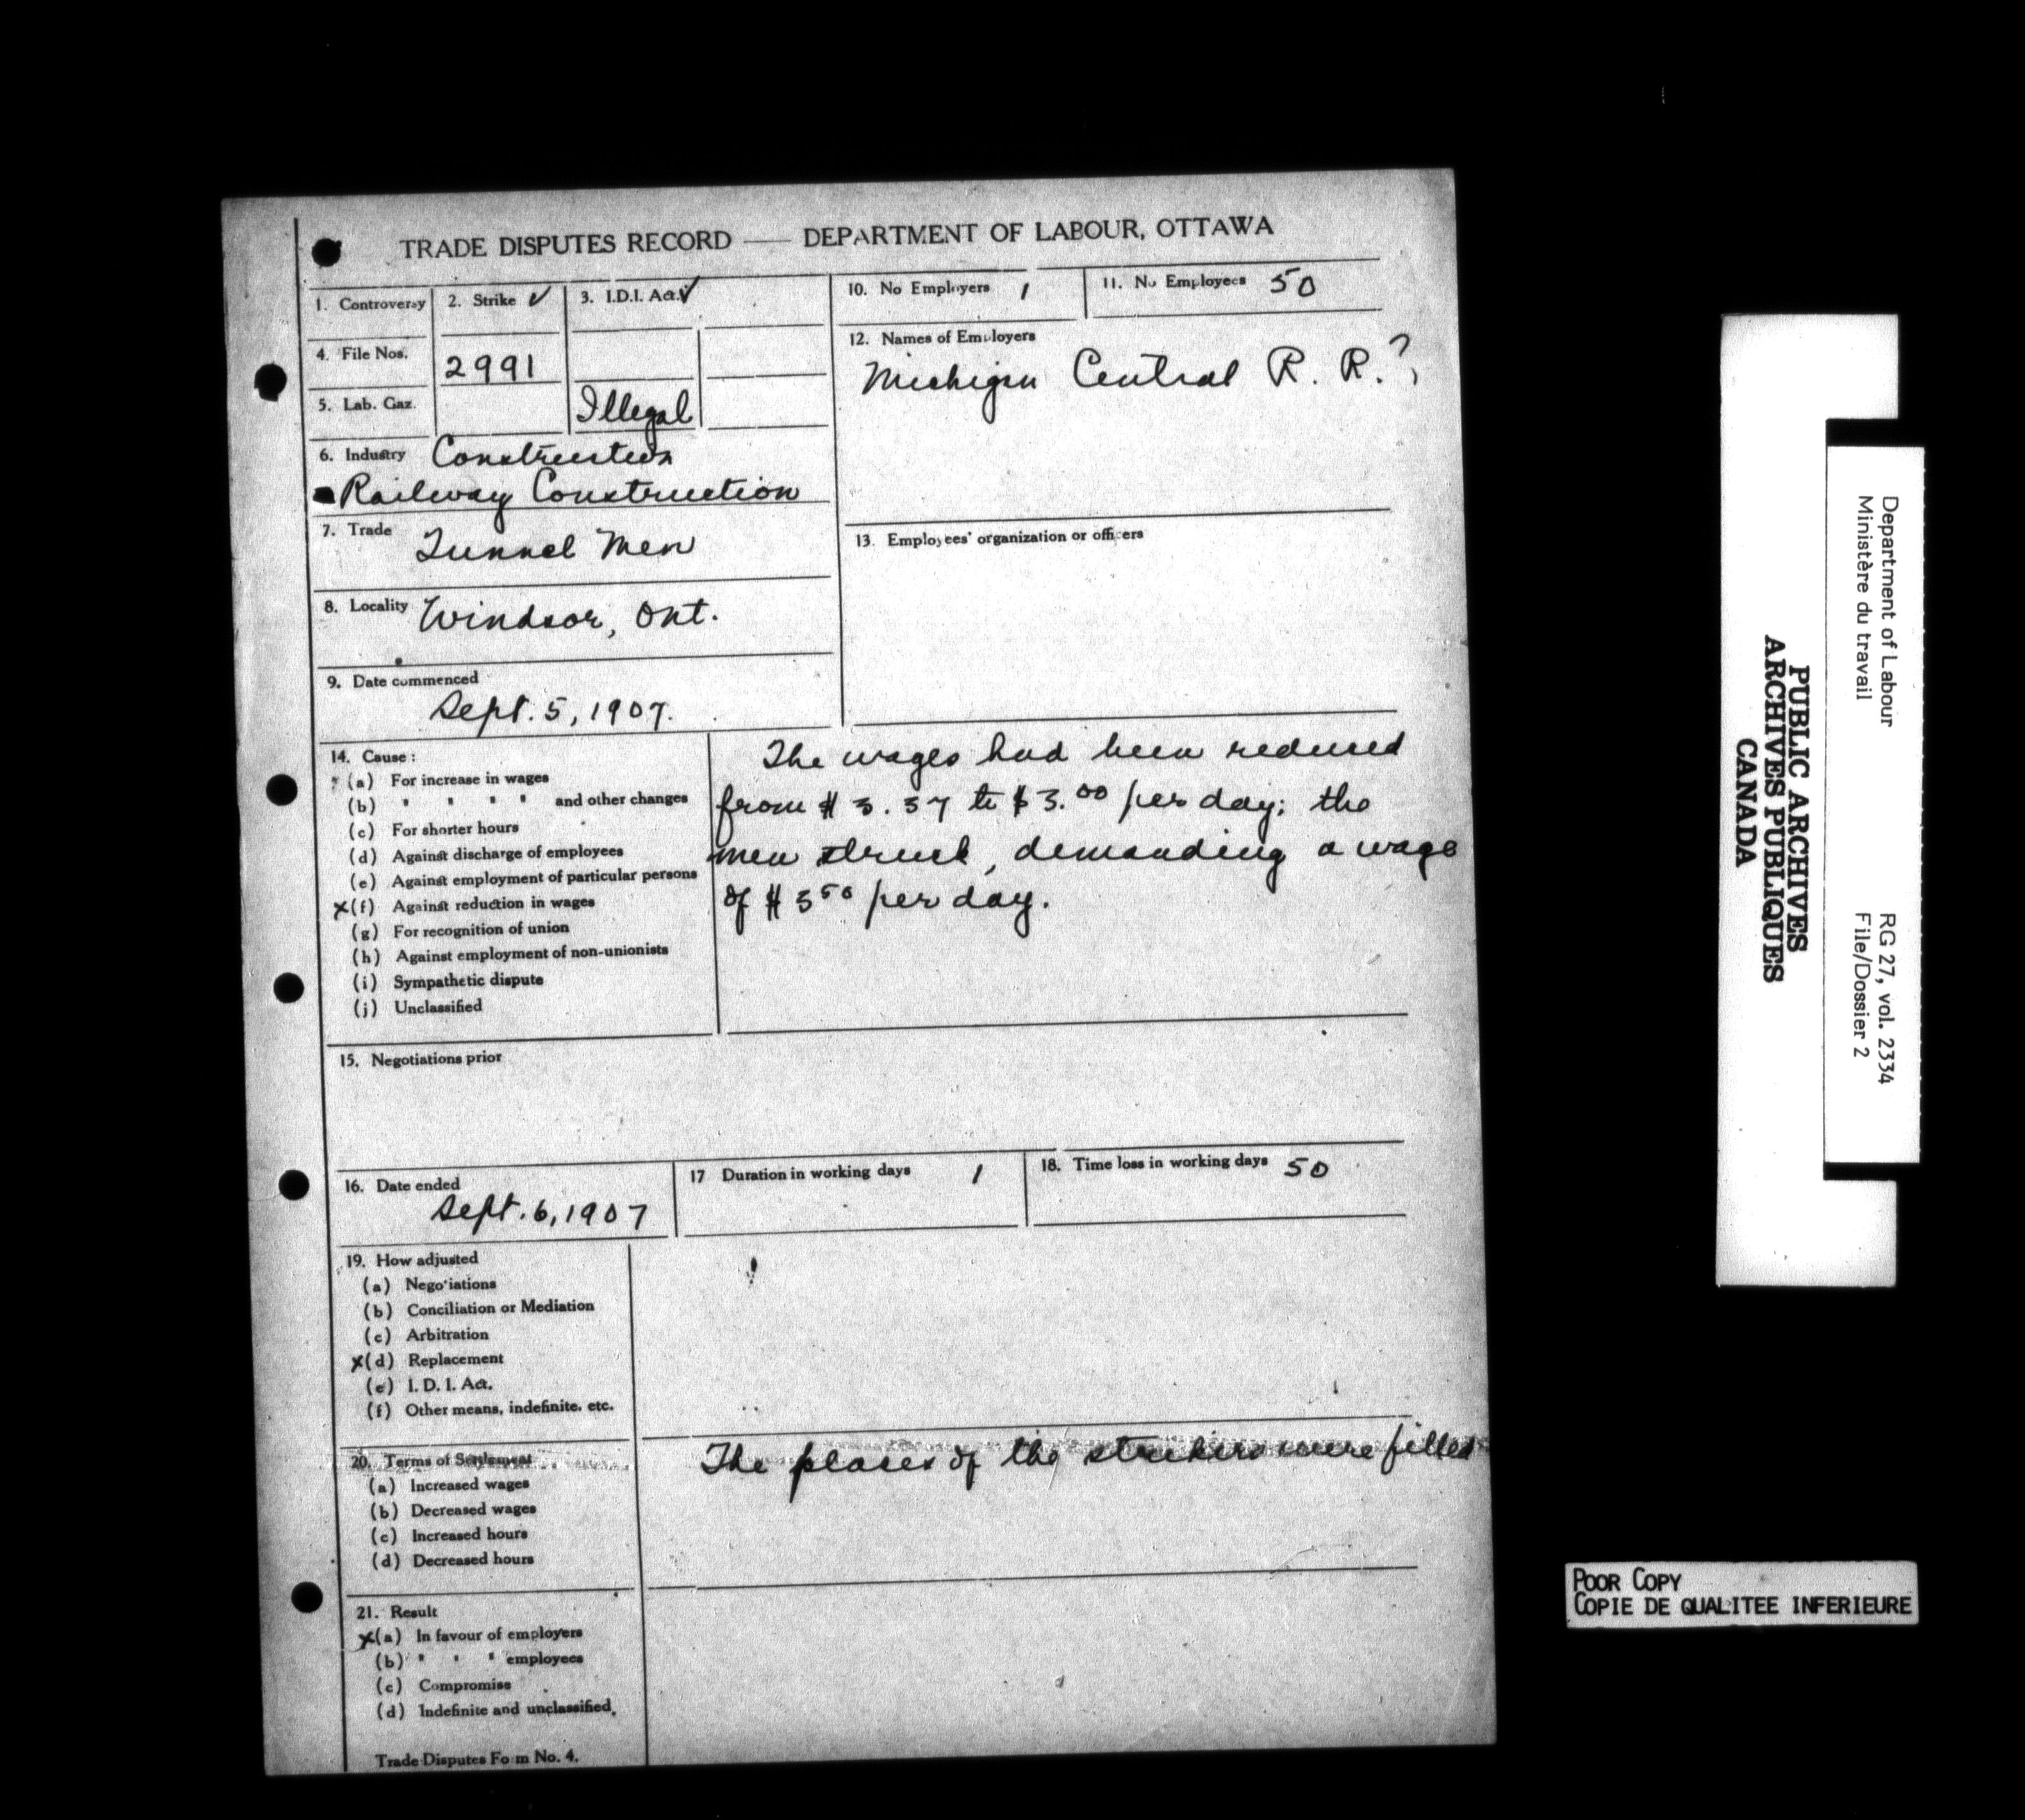 TRADE DISPUTES RECORD — DEPARTMENT OF LABOUR, OTTAWA
1. Controversy
2. Strike ✓
3. I.D.I. Act. ✓
10. No Employers 1
11. No Employees 50
4. File Nos.
2991
5. Lab. Gaz.
Illegal
12. Names of Employers
Michigan Central R. R.?
6. Industry Construction
Railway Construction
7. Trade Tunnel Men
13. Employees' organization or officers
8. Locality Windsor, Ont.
9. Date commenced
Sept. 5, 1907.
14. Cause :
(a) For increase in wages
(b) " " " " and other changes
(c) For shorter hours
(d) Against discharge of employees
(e) Against employment of particular persons
x(f) Against reduction in wages
(g) For recognition of union
(h) Against employment of non-unionists
(i) Sympathetic dispute
(j) Unclassified
The wages had been reduced
from $3.37 to $3.00 per day; the
men struck, demanding a wage
of $3 50 per day.
15. Negotiations prior
16. Date ended
Sept. 6, 1907
17 Duration in working days 1
18. Time loss in working days 50
19. How adjusted
(a) Negotiations
(b) Conciliation or Mediation
(c) Arbitration
x(d) Replacement
(e) I. D. I. Act.
(f) Other means, indefinite, etc.
20. Terms of Settlement
(a) Increased wages
(b) Decreased wages
(c) Increased hours
(d) Decreased hours
The places of the strikers were filled
21. Result
x(a) In favour of employers
(b) " " " employees
(c) Compromise
(d) Indefinite and unclassified.
Trade Disputes Form No. 4.
Department of Labour
Ministère du travail
RG 27, vol. 2334
File/Dossier 2
PUBLIC ARCHIVES
ARCHIVES PUBLIQUES
CANADA
POOR COPY
COPIE DE QUALITEE INFERIEURE